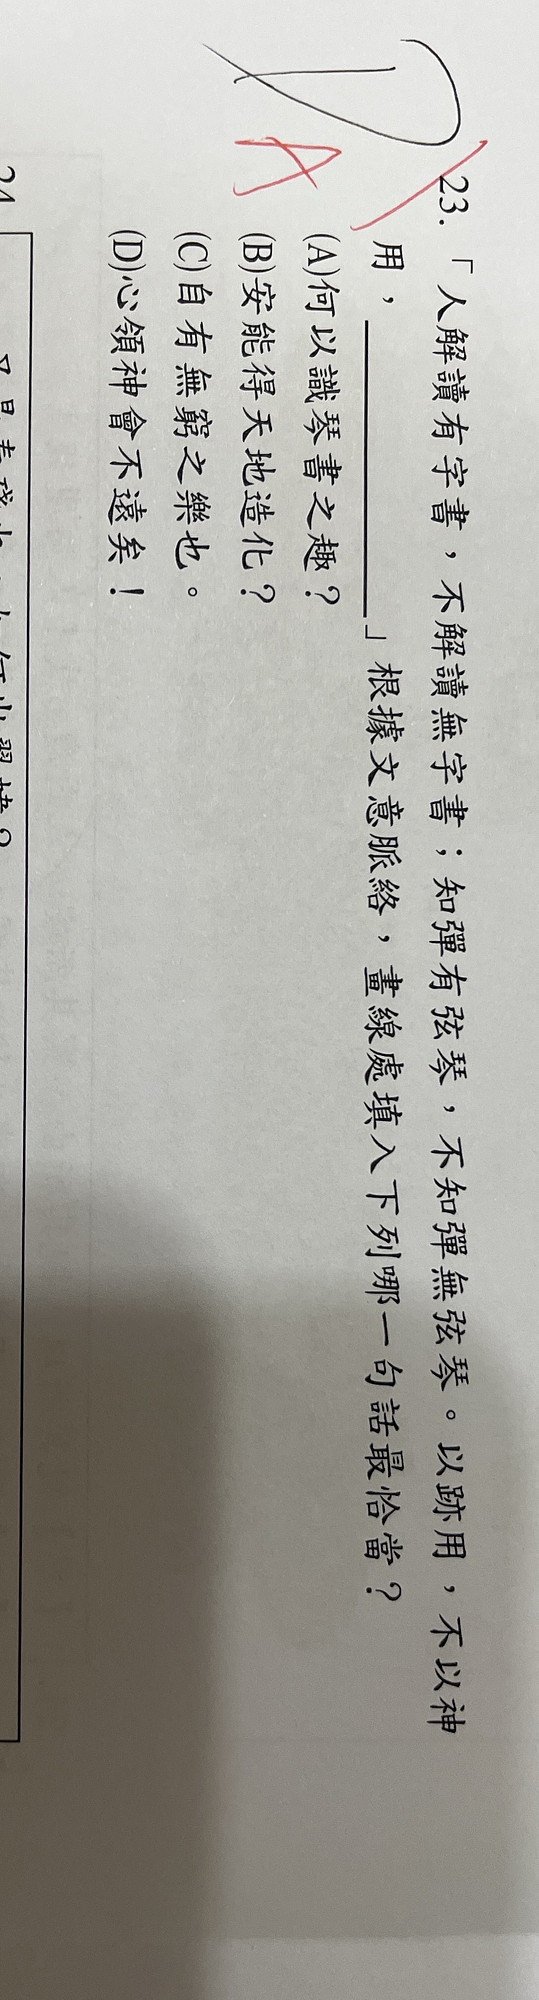 D
A
23.「人解讀有字書，不解讀無字書；知彈有弦琴，不知彈無弦琴。以跡用，不以神
用，＿＿＿＿＿＿」根據文意脈絡，畫線處填入下列哪一句話最恰當？
(A)何以識琴書之趣？
(B)安能得天地造化？
(C)自有無窮之樂也。
(D)心領神會不遠矣！
24